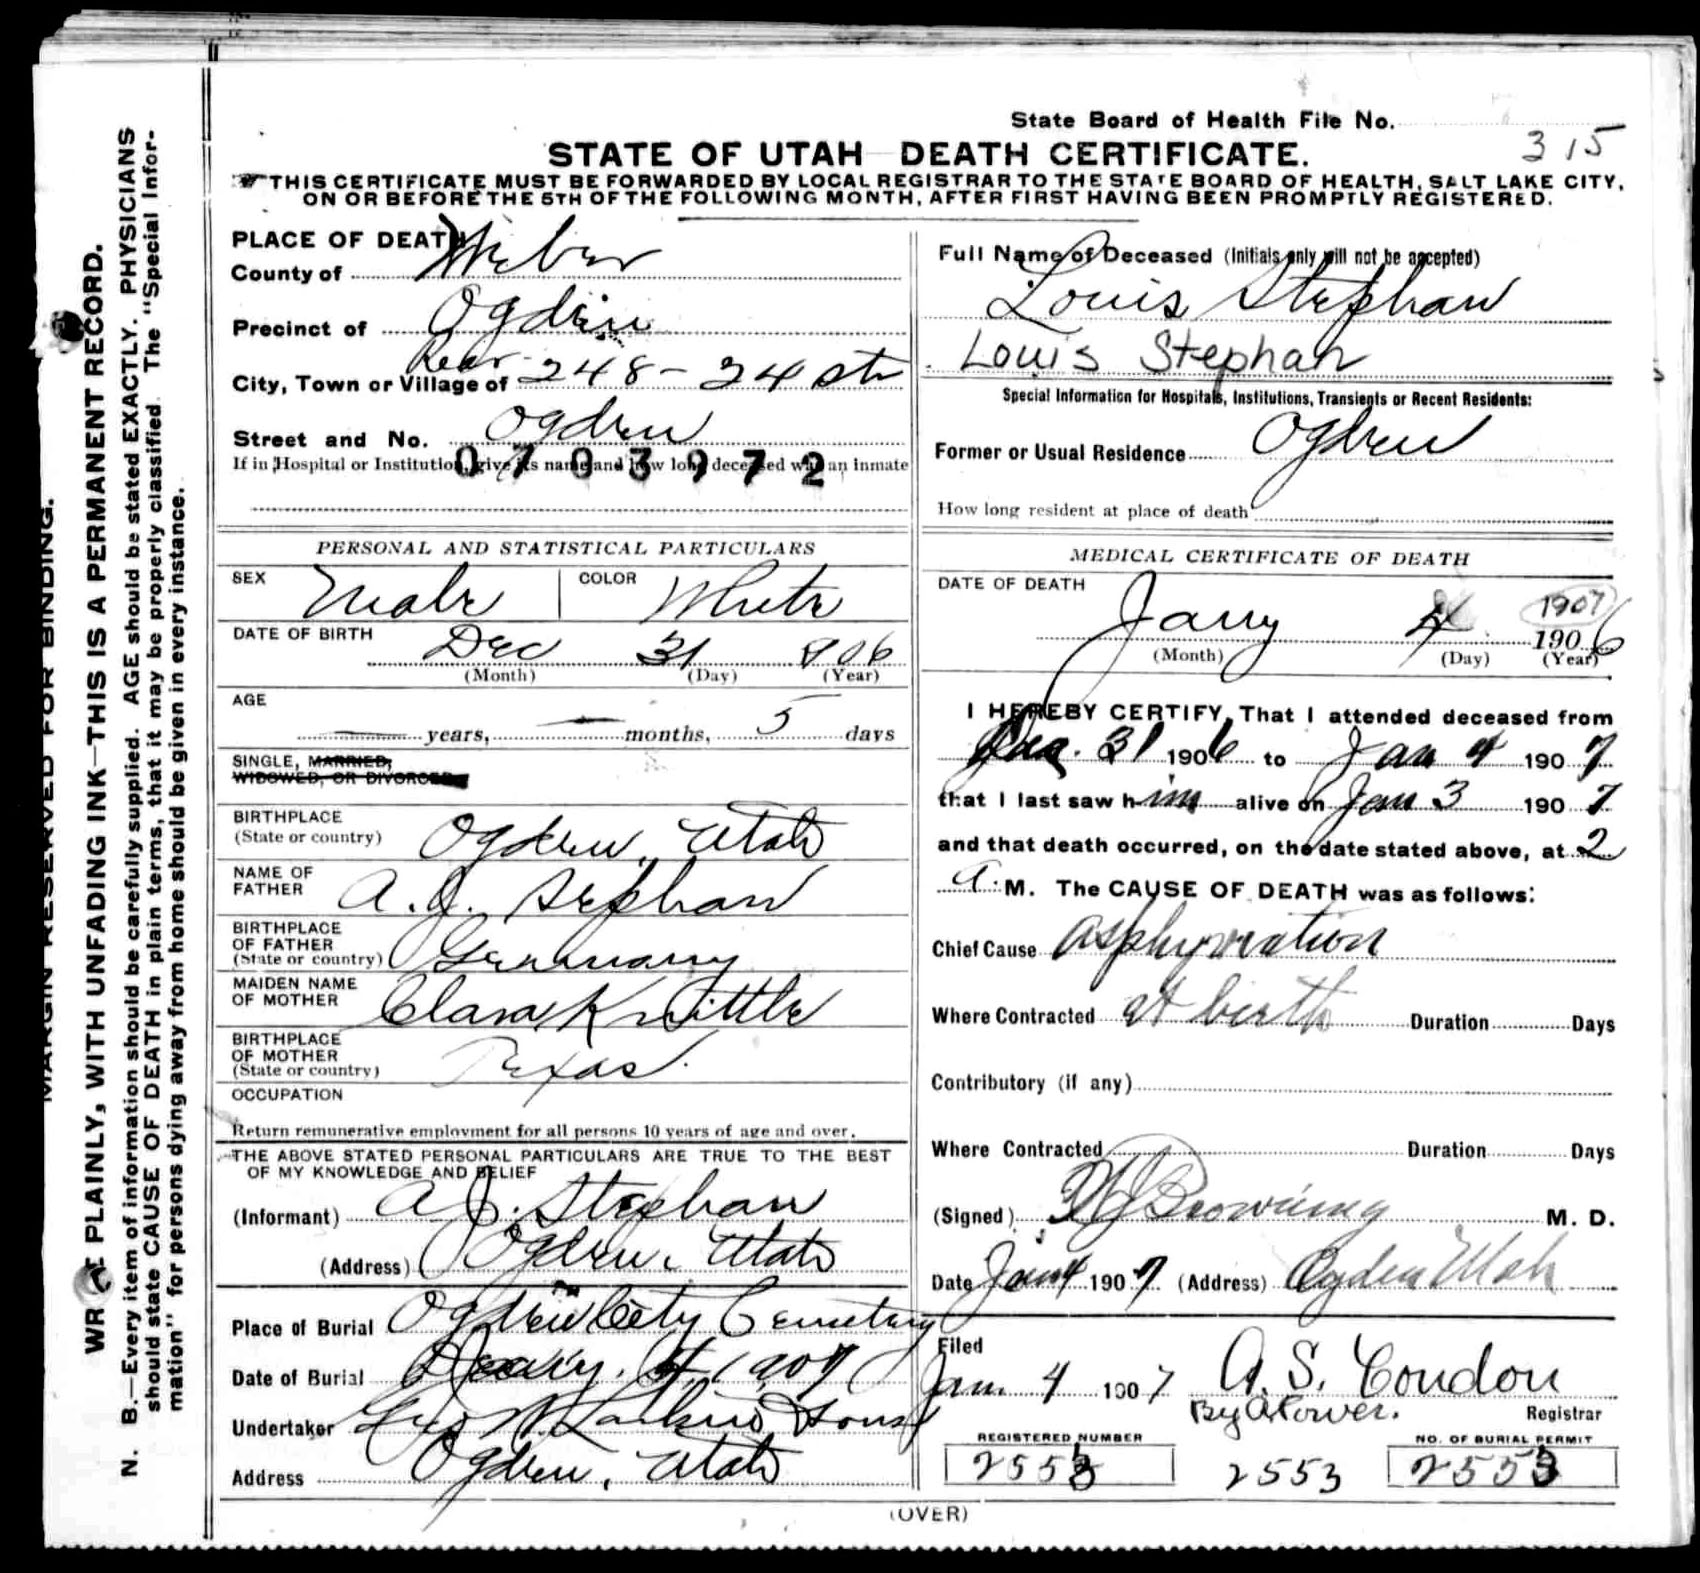 State Board of Health File No.
315
STATE OF UTAH DEATH CERTIFICATE.
THIS CERTIFICATE MUST BE FORWARDED BY LOCAL REGISTRAR TO THE STATE BOARD OF HEALTH, SALT LAKE CITY,
ON OR BEFORE THE 5TH OF THE FOLLOWING MONTH, AFTER FIRST HAVING BEEN PROMPTLY REGISTERED.
MARGIN RESERVED FOR BINDING.
WRITE PLAINLY, WITH UNFADING INK—THIS IS A PERMANENT RECORD.
N. B.—Every item of information should be carefully supplied. AGE should be stated EXACTLY. PHYSICIANS
should state CAUSE OF DEATH in plain terms, that it may be properly classified. The "Special Infor-
mation" for persons dying away from home should be given in every instance.
PLACE OF DEATH
County of Weber
Precinct of Ogden
City, Town or Village of Rear 248 - 24 st
Street and No. Ogden
0703972
If in Hospital or Institution, give its name and how long deceased was an inmate
PERSONAL AND STATISTICAL PARTICULARS
SEX Male COLOR White
DATE OF BIRTH Dec 31 906
(Month) (Day) (Year)
AGE
years, months, 5 days
SINGLE, MARRIED,
WIDOWED, OR DIVORCED
BIRTHPLACE
(State or country) Ogden, Utah
NAME OF
FATHER A. J. Stephan
BIRTHPLACE
OF FATHER
(State or country) Germany
MAIDEN NAME
OF MOTHER Clara Knittle
BIRTHPLACE
OF MOTHER
(State or country) Texas.
OCCUPATION
Return remunerative employment for all persons 10 years of age and over.
THE ABOVE STATED PERSONAL PARTICULARS ARE TRUE TO THE BEST
OF MY KNOWLEDGE AND BELIEF
(Informant) A J. Stephan
(Address) Ogden, Utah
Place of Burial Ogden City Cemetery
Date of Burial Jany. 4, 1907
Undertaker Geo W. Larkin & Sons
Address Ogden, Utah
Full Name of Deceased (Initials only will not be accepted)
Louis Stephan
Louis Stephan
Special Information for Hospitals, Institutions, Transients or Recent Residents:
Former or Usual Residence Ogden
How long resident at place of death
MEDICAL CERTIFICATE OF DEATH
DATE OF DEATH
1907
Jany 4 1906
(Month) (Day) (Year)
I HEREBY CERTIFY, That I attended deceased from
Dec. 31 1906 to Jan 4 1907
that I last saw him alive on Jan 3 1907
and that death occurred, on the date stated above, at 2
A. M. The CAUSE OF DEATH was as follows:
Chief Cause Asphyxiation
Where Contracted at birth Duration Days
Contributory (if any)
Where Contracted Duration Days
(Signed) Browning M. D.
Date Jan 4 1907 (Address) Ogden Utah
Filed
Jan. 4 1907 A. S. Condon
By Power. Registrar
REGISTERED NUMBER NO. OF BURIAL PERMIT
2553 2553 2553
(OVER)